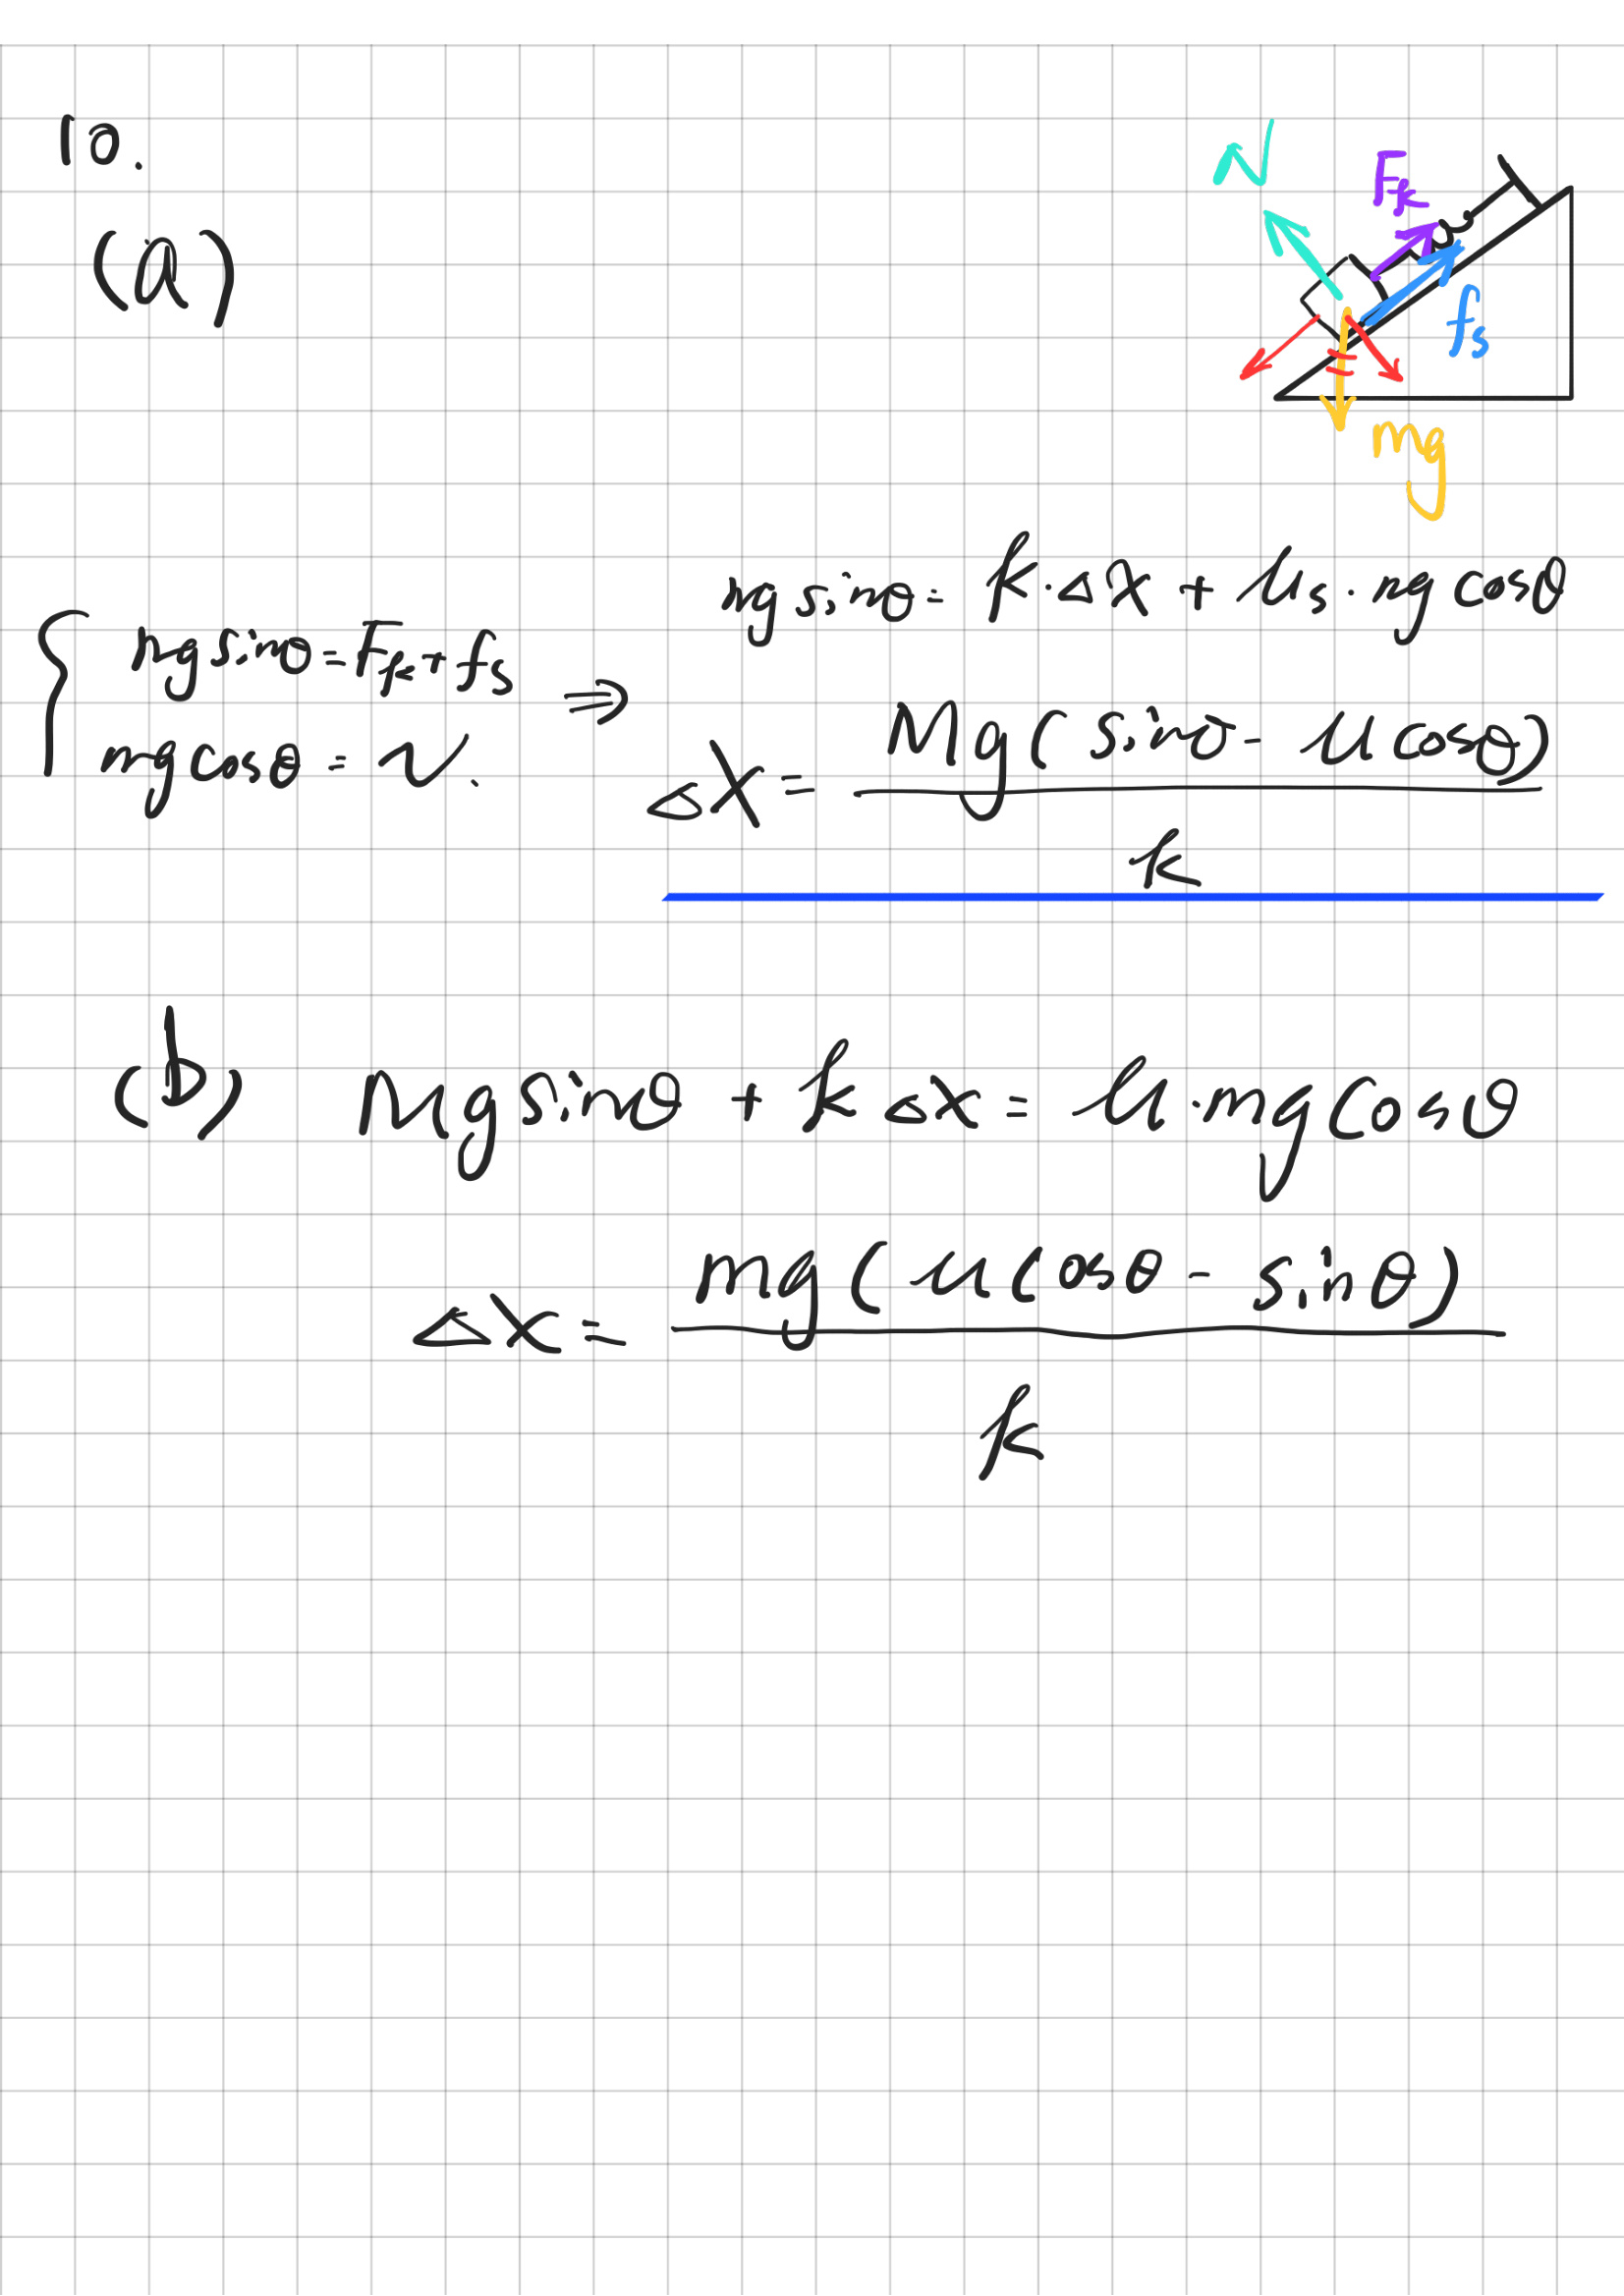 10.
(a)
N
Fk
fs
mg
mg sinθ = Fk + fs
mg cosθ = N.
⇒
mg sinθ = k · Δx + μs · mg cosθ
Δx = Mg( sinθ - μ cosθ) / k
(b) Mg sinθ + k Δx = μ · mg cosθ
Δx = mg( μ cosθ - sinθ) / k